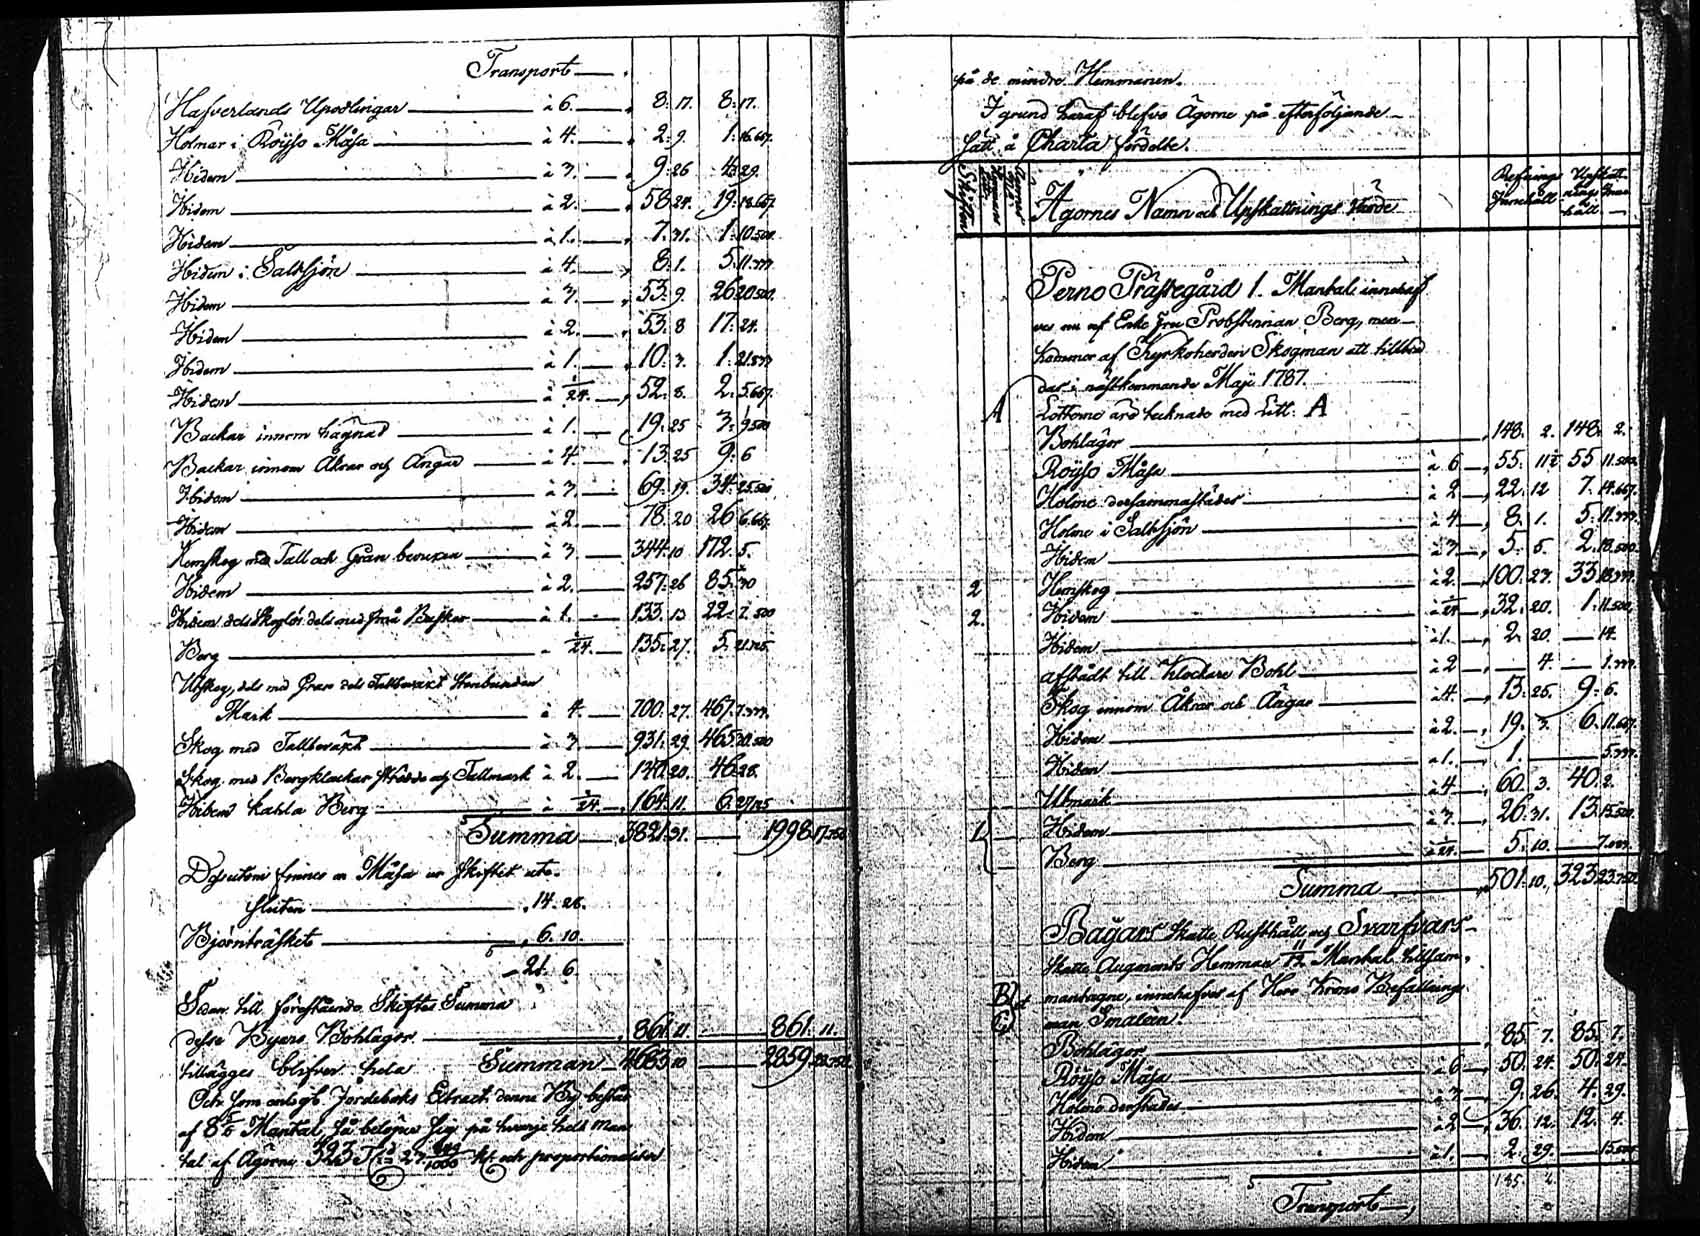 Transport
Hafverlands Upodlingar à 6. 8. 17. 8. 17.
Holmar i Röjsö Måsa à 4. 2. 9. 1. 16.667.
Hidem à 3. 9. 26 4. 29.
Hidem à 2. 58. 24. 19. 18.667.
Hidem à 1. 7. 31. 1. 10.500.
Hidem i Saltsjön à 4. 8. 1. 5. 11.333.
Hidem à 3. 53. 9. 26 20.500.
Hidem à 2. 53. 8 17. 24.
Hidem à 1. 10. 3. 1. 21.833
Hidem à 1/24. 52. 8. 2. 5.667.
Backar innom hägnad à 1. 19. 25 3. 9.500
Backar innom Åkrar och Ängar à 4. 13. 25 9. 6
Hidem à 3. 69. 19. 34. 25.500
Hidem à 2. 78. 20 26 6.667.
Hemskog med Tall och Gran bevuxen à 3. 344. 10 172. 5.
Hidem à 2. 257. 26 85. 30
Hidem dels Skoglös dels med små Busker à 1. 133. 13 22. 7.500
Berg à 1/24. 135. 27. 5. 21.125.
Utskog, dels med Gran dels Tallbeväxt Stenbunden
Mark à 4. 700. 27. 467. 7.333.
Skog med Tallbeväxt à 3 931. 29. 465. 30.500
Skog med Bergklackar och Tallmark à 2. 140. 20. 46. 28.
Hidem kahla Berg à 1/24. 164. 11. 6. 27.125
Summa 3821. 31. 1998. 17.750
Desutom finnes en Måsa ur Skiftet ute-
sluten 14. 28.
Björnträsket 6. 10.
21. 6.
Sedan till förestående Skiftes Summa
desse Byars Bohlågor 861. 11. 861. 11.
tillägges blifver hela Summan 4683. 10 2859. 28.750.
Och som enligt Jordeboks Extract denna By består
af 8 5/6 Mantal, så belöper sig på hvarje helt Man-
tal af Ägorne 323 Tld 23 749/1000 kl och proportionaliter
på de mindre Hemmanen.
I grund häraf blefvo Ägorne på efterföljande
sätt å Charta fördelte.
Skiften
Ägornes Namn och Upskattnings Värde
Refnings Innehåll
Upskattnings Innehåll
Perno Prästegård 1. Mantal innehaf-
ves nu af Enke Fru Probstinnan Berg, men
kommer af Kyrkoherden Skogman att tillträ-
das i nästkommande Maji 1787.
A Lotterne äro tecknade med Litt. A
Bohlågor 148. 2. 148. 2.
Röjsö Måsa à 6 55. 11½ 55 11.500
Holme dersammastädes à 2 22. 12 7. 14.667.
Holme i Saltsjön à 4 8. 1. 5. 11.333.
Hidem à 3 5. 5. 2. 18.500
2 Hemskog à 2. 100. 27. 33. 19.333.
2. Hidem à 1/24 32. 20. 1. 11.500.
Hidem à 1. 2. 20. 14.
afstådt till Klockare Bohl à 2 4. 1.333.
Skog innom Åkrar och Ängar à 4. 13. 25. 9. 6.
Hidem à 2. 19. 3. 6. 11.667.
Hidem à 1. 1. 5.333.
Utmark à 4 60. 3. 40. 2.
1. Hidem à 3. 26. 31. 13. 15.500.
Berg à 1/24. 5. 10. 7.
Summa 501. 10. 323. 23.750.
Bagars Skatte Rusthåll och Svarfvars
Skatte Augments Hemman Mantal tillsam-
B et mantagne, innehafves af Herr Krono Befallnings-
C man Smalèen.
Bohlågor 85. 7. 85. 7.
Röjsö Måsa à 6 50. 24. 50. 24.
Holme derstädes à 3 9. 26. 4. 29.
Hidem à 2 36. 12. 12. 4.
Hidem à 1. 2. 29. 15.500
185. 2.
Transport